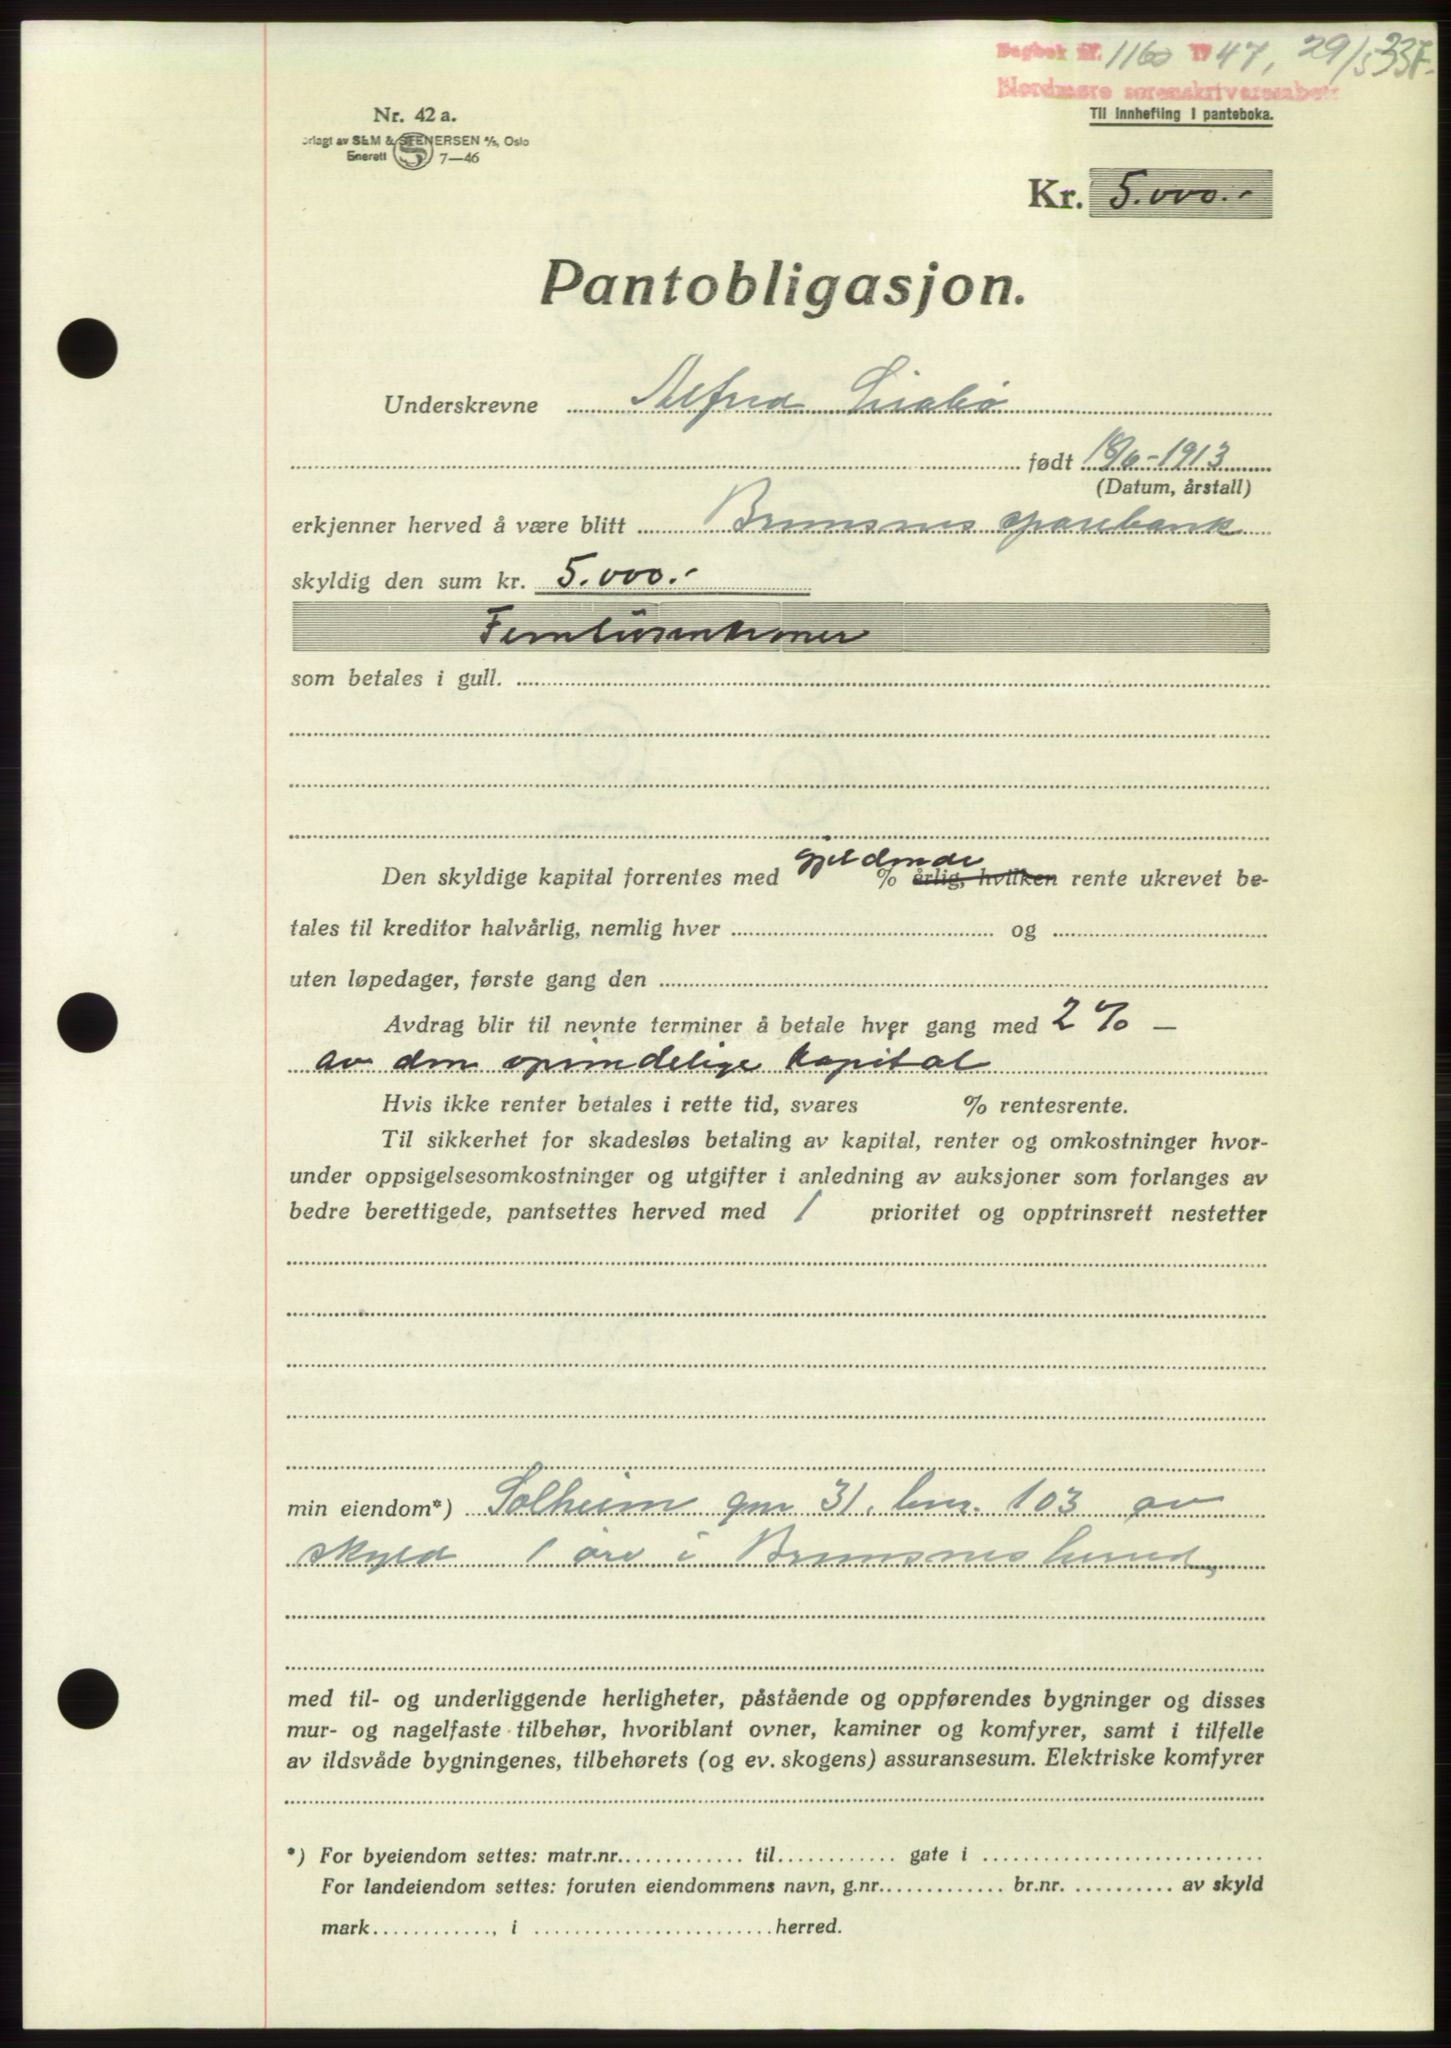 Dagbok nr. 1160 1947, 29/5 337.
Nordmøre sorenskriverembete
Til innhefting i panteboka.
Nr. 42 a.
orlagt av SEM & STENERSEN A/S, Oslo
Enerett 7—46
Kr. 5.000.-
Pantobligasjon.
Underskrevne Alfred
født 18/6-1913
(Datum, årstall)
erkjenner herved å være blitt Bremsnes sparebank
skyldig den sum kr. 5.000.-
Femtusenkroner
som betales i gull.
gjeldende
Den skyldige kapital forrentes med % årlig, hvilken rente ukrevet be-
tales til kreditor halvårlig, nemlig hver og
uten løpedager, første gang den
Avdrag blir til nevnte terminer å betale hver gang med 2% —
av den oprindelige kapital
Hvis ikke renter betales i rette tid, svares % rentesrente.
Til sikkerhet for skadesløs betaling av kapital, renter og omkostninger hvor-
under oppsigelsesomkostninger og utgifter i anledning av auksjoner som forlanges av
bedre berettigede, pantsettes herved med 1 prioritet og opptrinsrett nestetter
min eiendom*) Solheim gnr 31. bnr. 103 av
skyld 1 øre i Bremsnes herred,
med til- og underliggende herligheter, påstående og oppførendes bygninger og disses
mur- og nagelfaste tilbehør, hvoriblant ovner, kaminer og komfyrer, samt i tilfelle
av ildsvåde bygningenes, tilbehørets (og ev. skogens) assuransesum. Elektriske komfyrer
*) For byeiendom settes: matr.nr. til gate i
For landeiendom settes: foruten eiendommens navn, g.nr. br.nr. av skyld
mark , i herred.